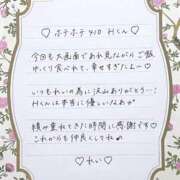 ♡ ホテホテ410 Hくん ♡
今回も大画面であれ見ながらご飯
ゆくり食べれて、幸せすぎたよー♡
いつもれいの為に沢山ありがとう…!
Hくんは本当に優しいなぁ♡
積み重ねてきた時間に感謝です♡
これからも仲良くしてね♡
♡ れい ♡